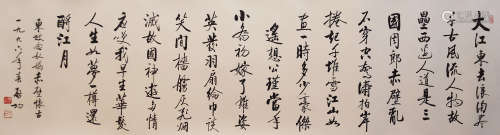 大江東去浪淘盡
千古風流人物故
壘西邊人道是三
國周郎赤壁亂
石穿空驚濤拍岸
捲起千堆雪江山如
畫一時多少豪傑
遙想公瑾當年
小喬初嫁了雄姿
英發羽扇綸巾談
笑間檣艣灰飛煙
滅故國神遊多情
應笑我早生華髮
人生如夢一樽還
酹江月
東坡念奴嬌赤壁懷古
一九九六年夏 啟功